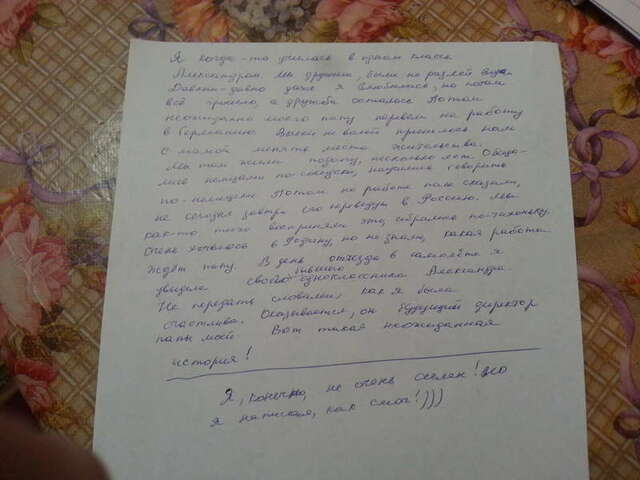 Я когда-то училась в одном классе
Александром. Мы дружили, были не разлей вода
Давным-давно даже я влюбилась, но потом
всё прошло, а дружба осталась. Потом
неожиданно моего папу перевели на работу
в Германию. Волей не волей пришлось нам
с мамой менять место жительства.
Мы там жили подолгу, несколько лет. Обща-
лись с немцами по-соседски, научились говорить
по-немецки. Потом на работе папе сказали,
не сегодня завтра его переведут в Россию. Мы
как-то тихо восприняли это, собрались по-тихоньку.
Очень хотелось в Родину, но не знали, какая работа
ждёт папу. В день отъезда в самолёте я
увидела своего бывшего одноклассника Александра.
Не передать словами, как я была
счастлива. Оказывается, он будущий директор
папы моей. Вот такая неожиданная
история!
Я, конечно, не очень
я написал, как смог!)))